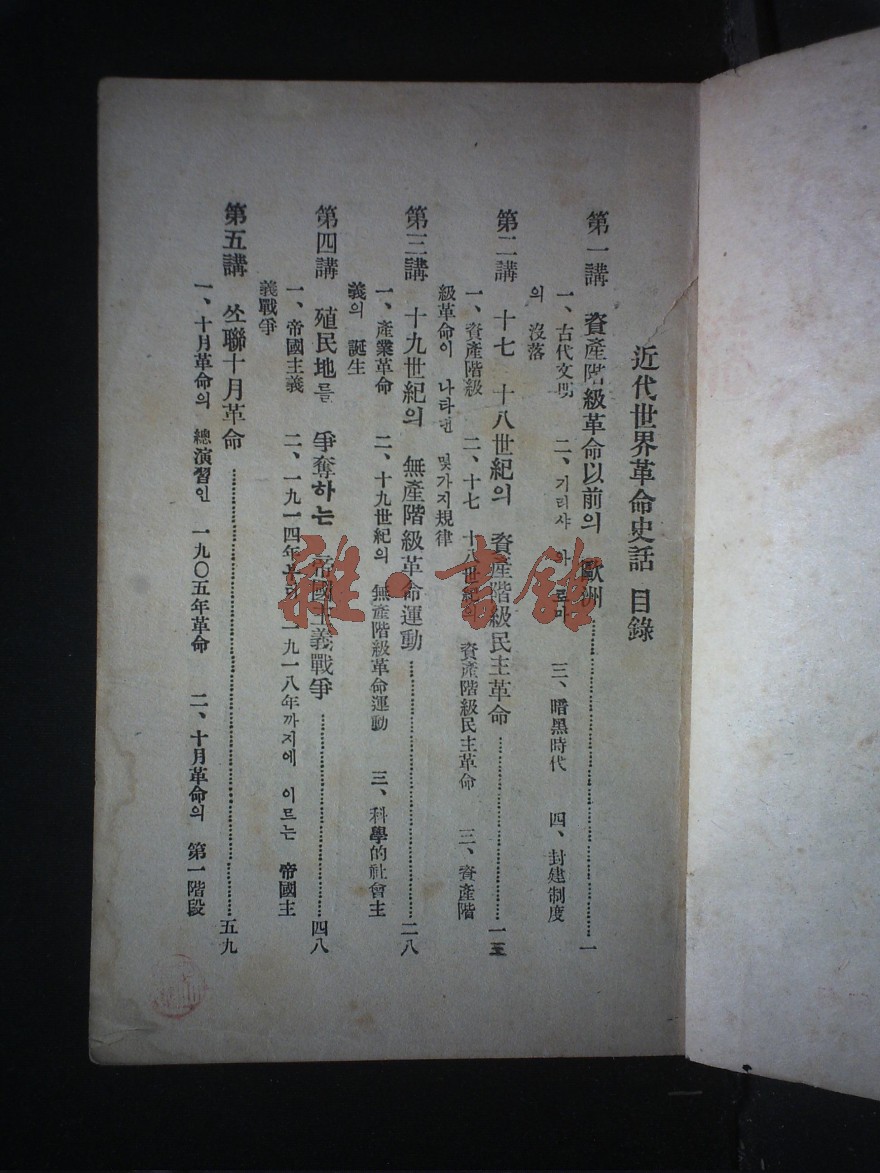 近代世界革命史話 目錄
第一講 資產階級革命以前의 歐洲……一
一、古代文明 二、기리샤 와 로마 三、暗黑時代 四、封建制度
의 沒落
第二講 十七 十八世紀의 資產階級民主革命……一五
一、資產階級 二、十七 十八世紀의 資產階級民主革命 三、資產階
級革命이 나타낸 몇가지規律
第三講 十九世紀의 無產階級革命運動……二八
一、產業革命 二、十九世紀의 無產階級革命運動 三、科學的社會主
義의 誕生
第四講 殖民地를 爭奪하는 帝國主義戰爭……四八
一、帝國主義 二、一九一四年부터一九一八年까지에 이르는 帝國主
義戰爭
第五講 쏘聯十月革命……五九
一、十月革命의 總演習인 一九〇五年革命 二、十月革命의 第一階段
雜·書館